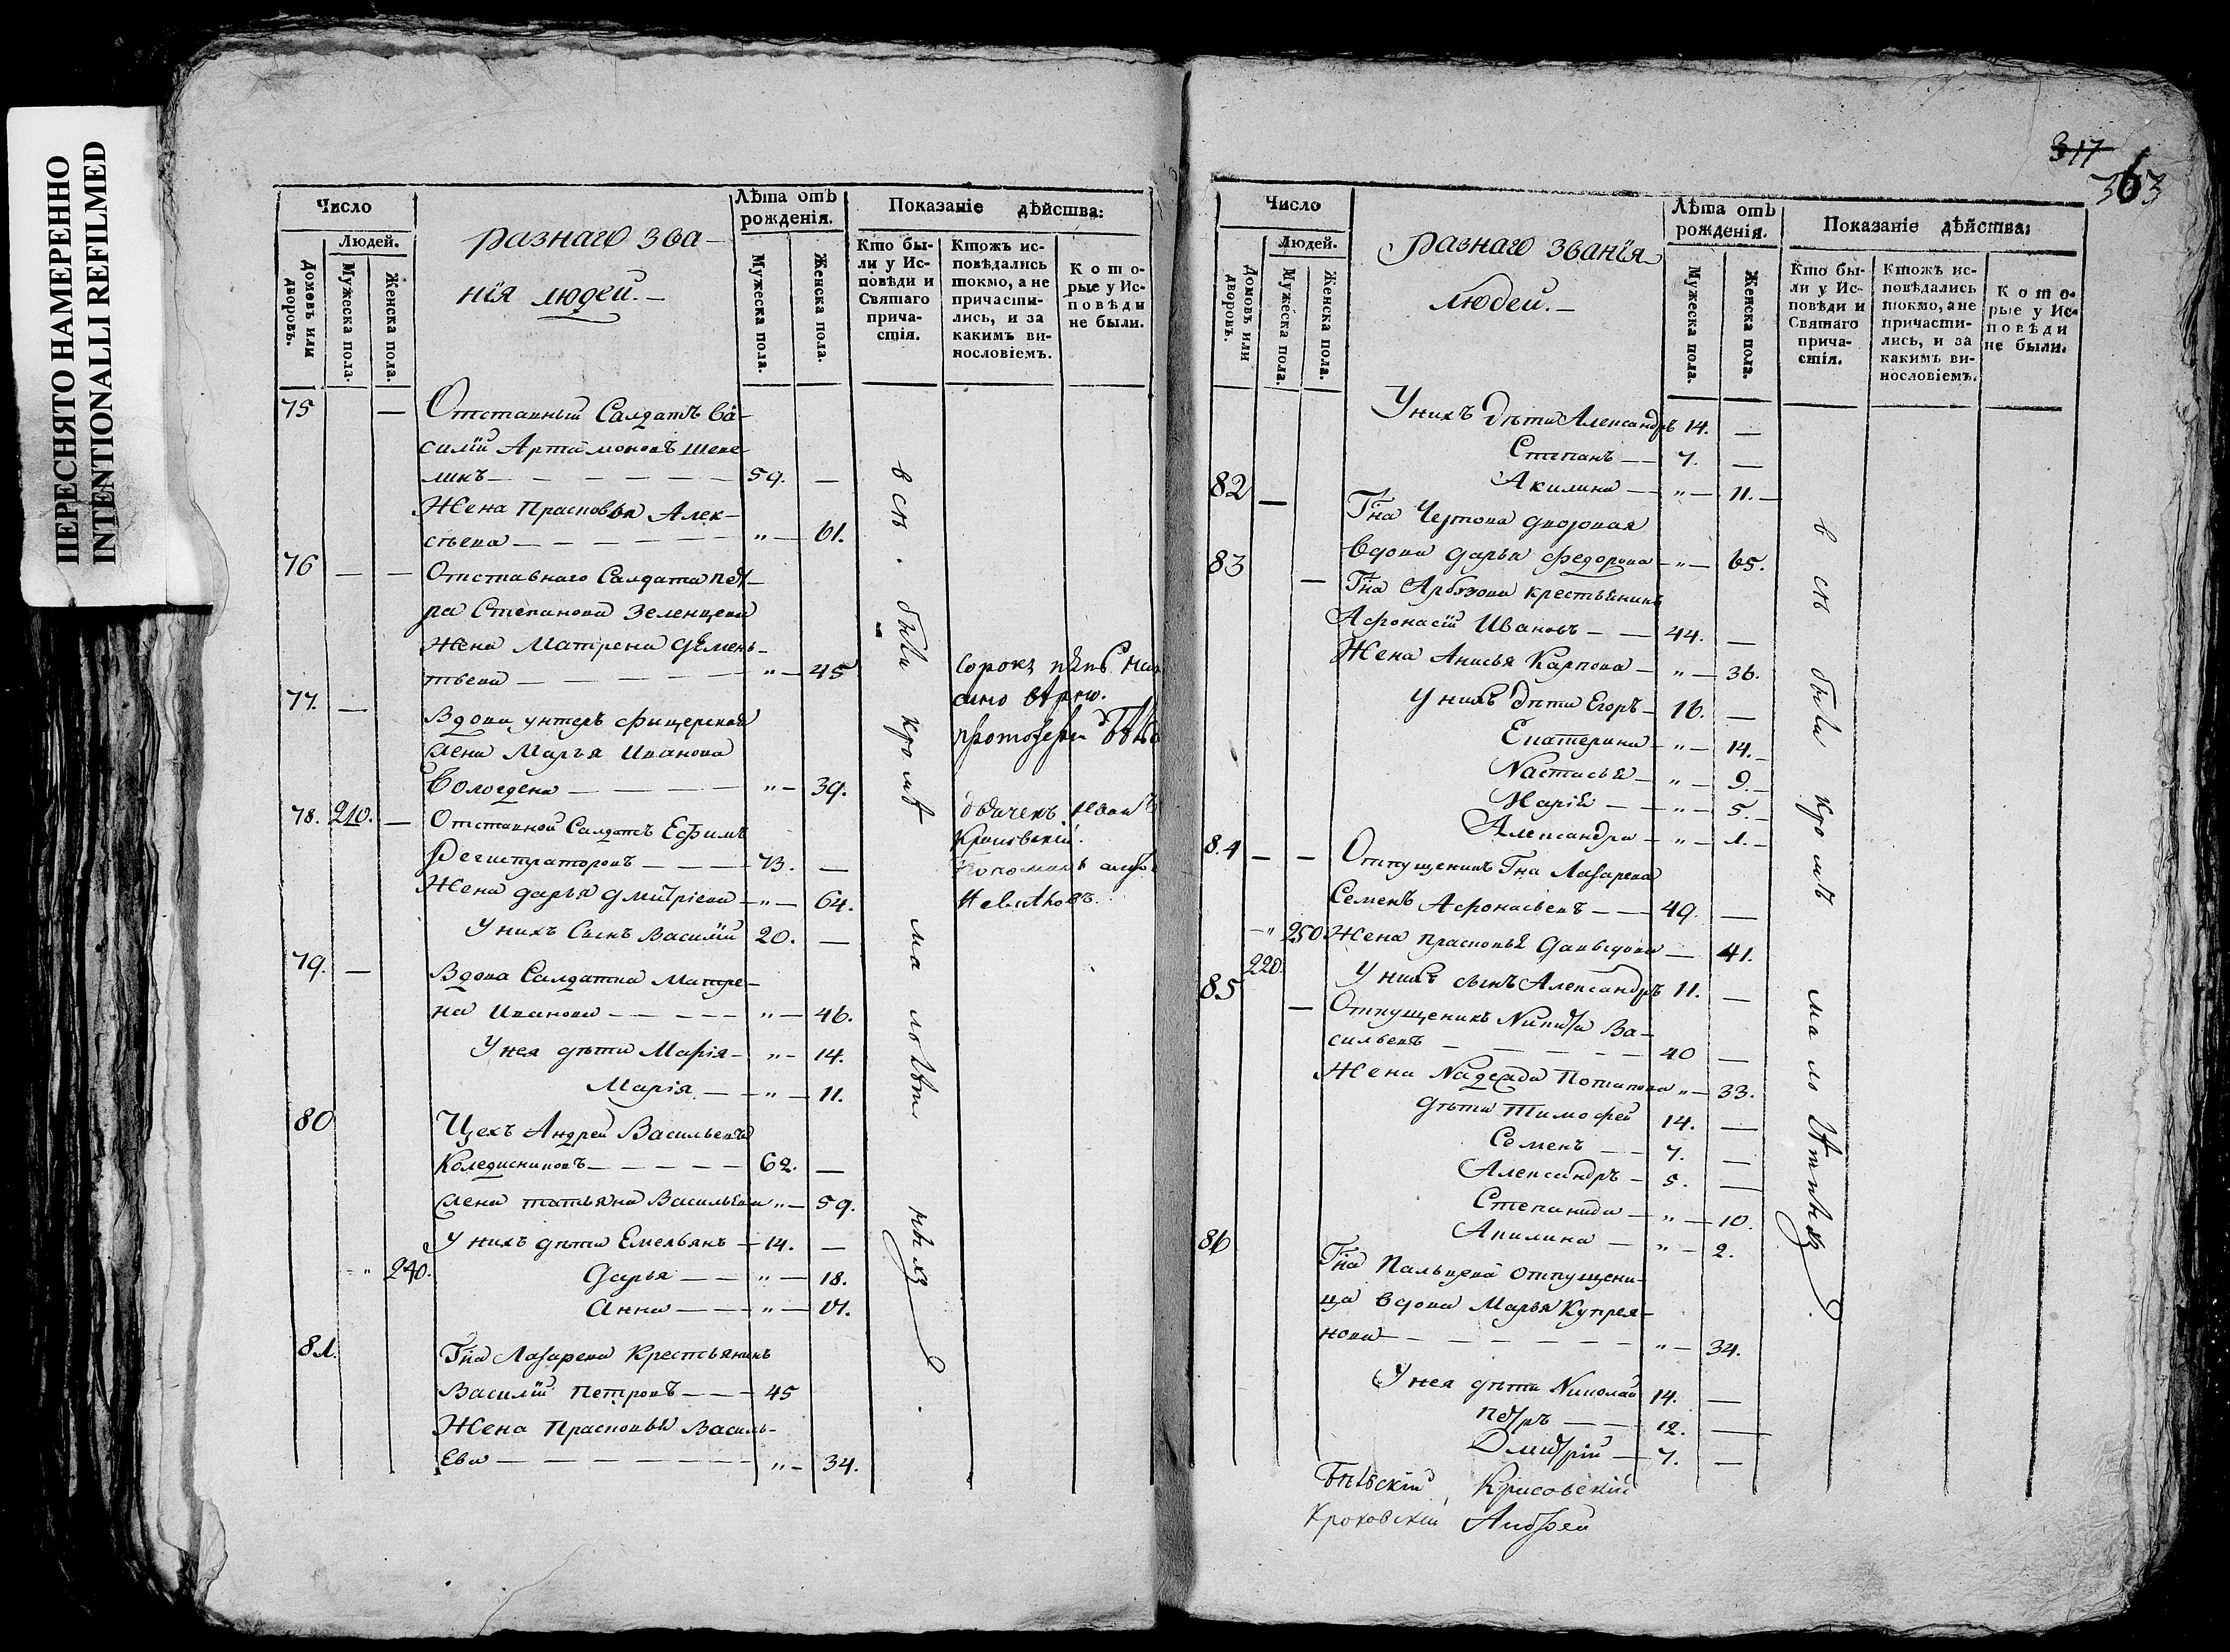 ПЕРЕСНЯТО НАМЕРЕННО
INTENTIONALLI REFILMED
Число
Людей.
Домовъ или дворовъ.
Мужеска пола.
Женска пола.
разнаго зва-
нїя людей.-
Лѣта отъ рожденія.
Мужеска пола.
Женска пола.
Показаніе дѣйства:
Кто бы-
ли у Ис-
повѣди и
Святаго
прича-
стія.
Ктожъ ис-
повѣдались
токмо, а не
причасти-
лись, и за
какимъ ви-
нословіемъ.
Кото-
рые у Ис-
повѣди
не были.
75 — Отставный Салдатъ Ва-
силїй Артамоновъ Шепе-
линъ — 59. —
Жена Прасковья Алек-
сѣева — " — 61.
76 — — Отставнаго Салдата Пет-
ра Степанова Зеленцева
Жена Матрена Демен-
тьева — " — 45
77. — Вдова унтеръ Офицерская
жена Марья Иванова
Вологдена — " — 39.
78. 210. — Отставной Салдатъ Ефимъ
Регистраторовъ — 73. —
Жена Дарья Дмитрїева — " — 64.
У нихъ Сынъ Василїй 20. —
79. — Вдова Салдатка Матре-
на Иванова — " — 46.
У нея дѣти Марїя — " — 14.
Марїя — " — 11.
80 Цехъ Андрей Васильевъ
Колесниковъ — 62. —
жена Татьяна Васильева " — 59.
У нихъ дѣти Емельянъ — 14. —
" 240. Дарья — " — 18.
Анна — " — 17.
81. Гна Лазарева Крестьянинъ
Василїй Петровъ — 45
Жена Прасковья Василь-
Ева — " — 34.
всѣ были кромѣ малолѣтныхъ
Сорокъ пять
Крисовскїй.
317
363
Число
Людей.
Домовъ или дворовъ.
Мужеска пола.
Женска пола.
разнаго званїя
людей.-
Лѣта отъ рожденія.
Мужеска пола.
Женска пола.
Показаніе дѣйства:
Кто бы-
ли у Ис-
повѣди и
Святаго
прича-
стія.
Ктожъ ис-
повѣдались
токмо, а не
причасти-
лись, и за
какимъ ви-
нословіемъ.
Кото-
рые у Ис-
повѣди
не были.
У нихъ дѣти Александръ 14. —
Степанъ — 7. —
Акилина — " — 11. —
82 — Гна Чертова дворовая
вдова Дарья Федорова — " — 65.
83 — Гна Арбузова крестьянинъ
Афонасїй Ивановъ — 44. —
Жена Анисья Карпова — " — 36.
У нихъ дѣти Егоръ — 16. —
Екатерина — " — 14. —
Настасья — " — 9. —
Марїя — " — 5. —
Александра — " — 1. —
84 — — Отпущеникъ Гна Лазарева
Семенъ Афонасьевъ — 49. —
" 250 Жена Прасковья Давыдова — 41.
220. У нихъ сынъ Александръ 11. —
85 — Отпущеникъ Никита Ва-
сильевъ — 40 —
Жена Надежда Потапова " — 33.
Дѣти Тимофей 14. —
Семенъ — 7. —
Александръ — 5. —
Степанида — " — 10.
Акилина — " — 2.
86 Гна Пальцева отпущени-
ца вдова Марья Купрея-
нова — " — 34.
У нея дѣти Николай 14. —
Петръ — 12. —
Дмитрїй — 7. —
всѣ были кромѣ малолѣтныхъ
Крисовскїй
Кроковскїй Андрей